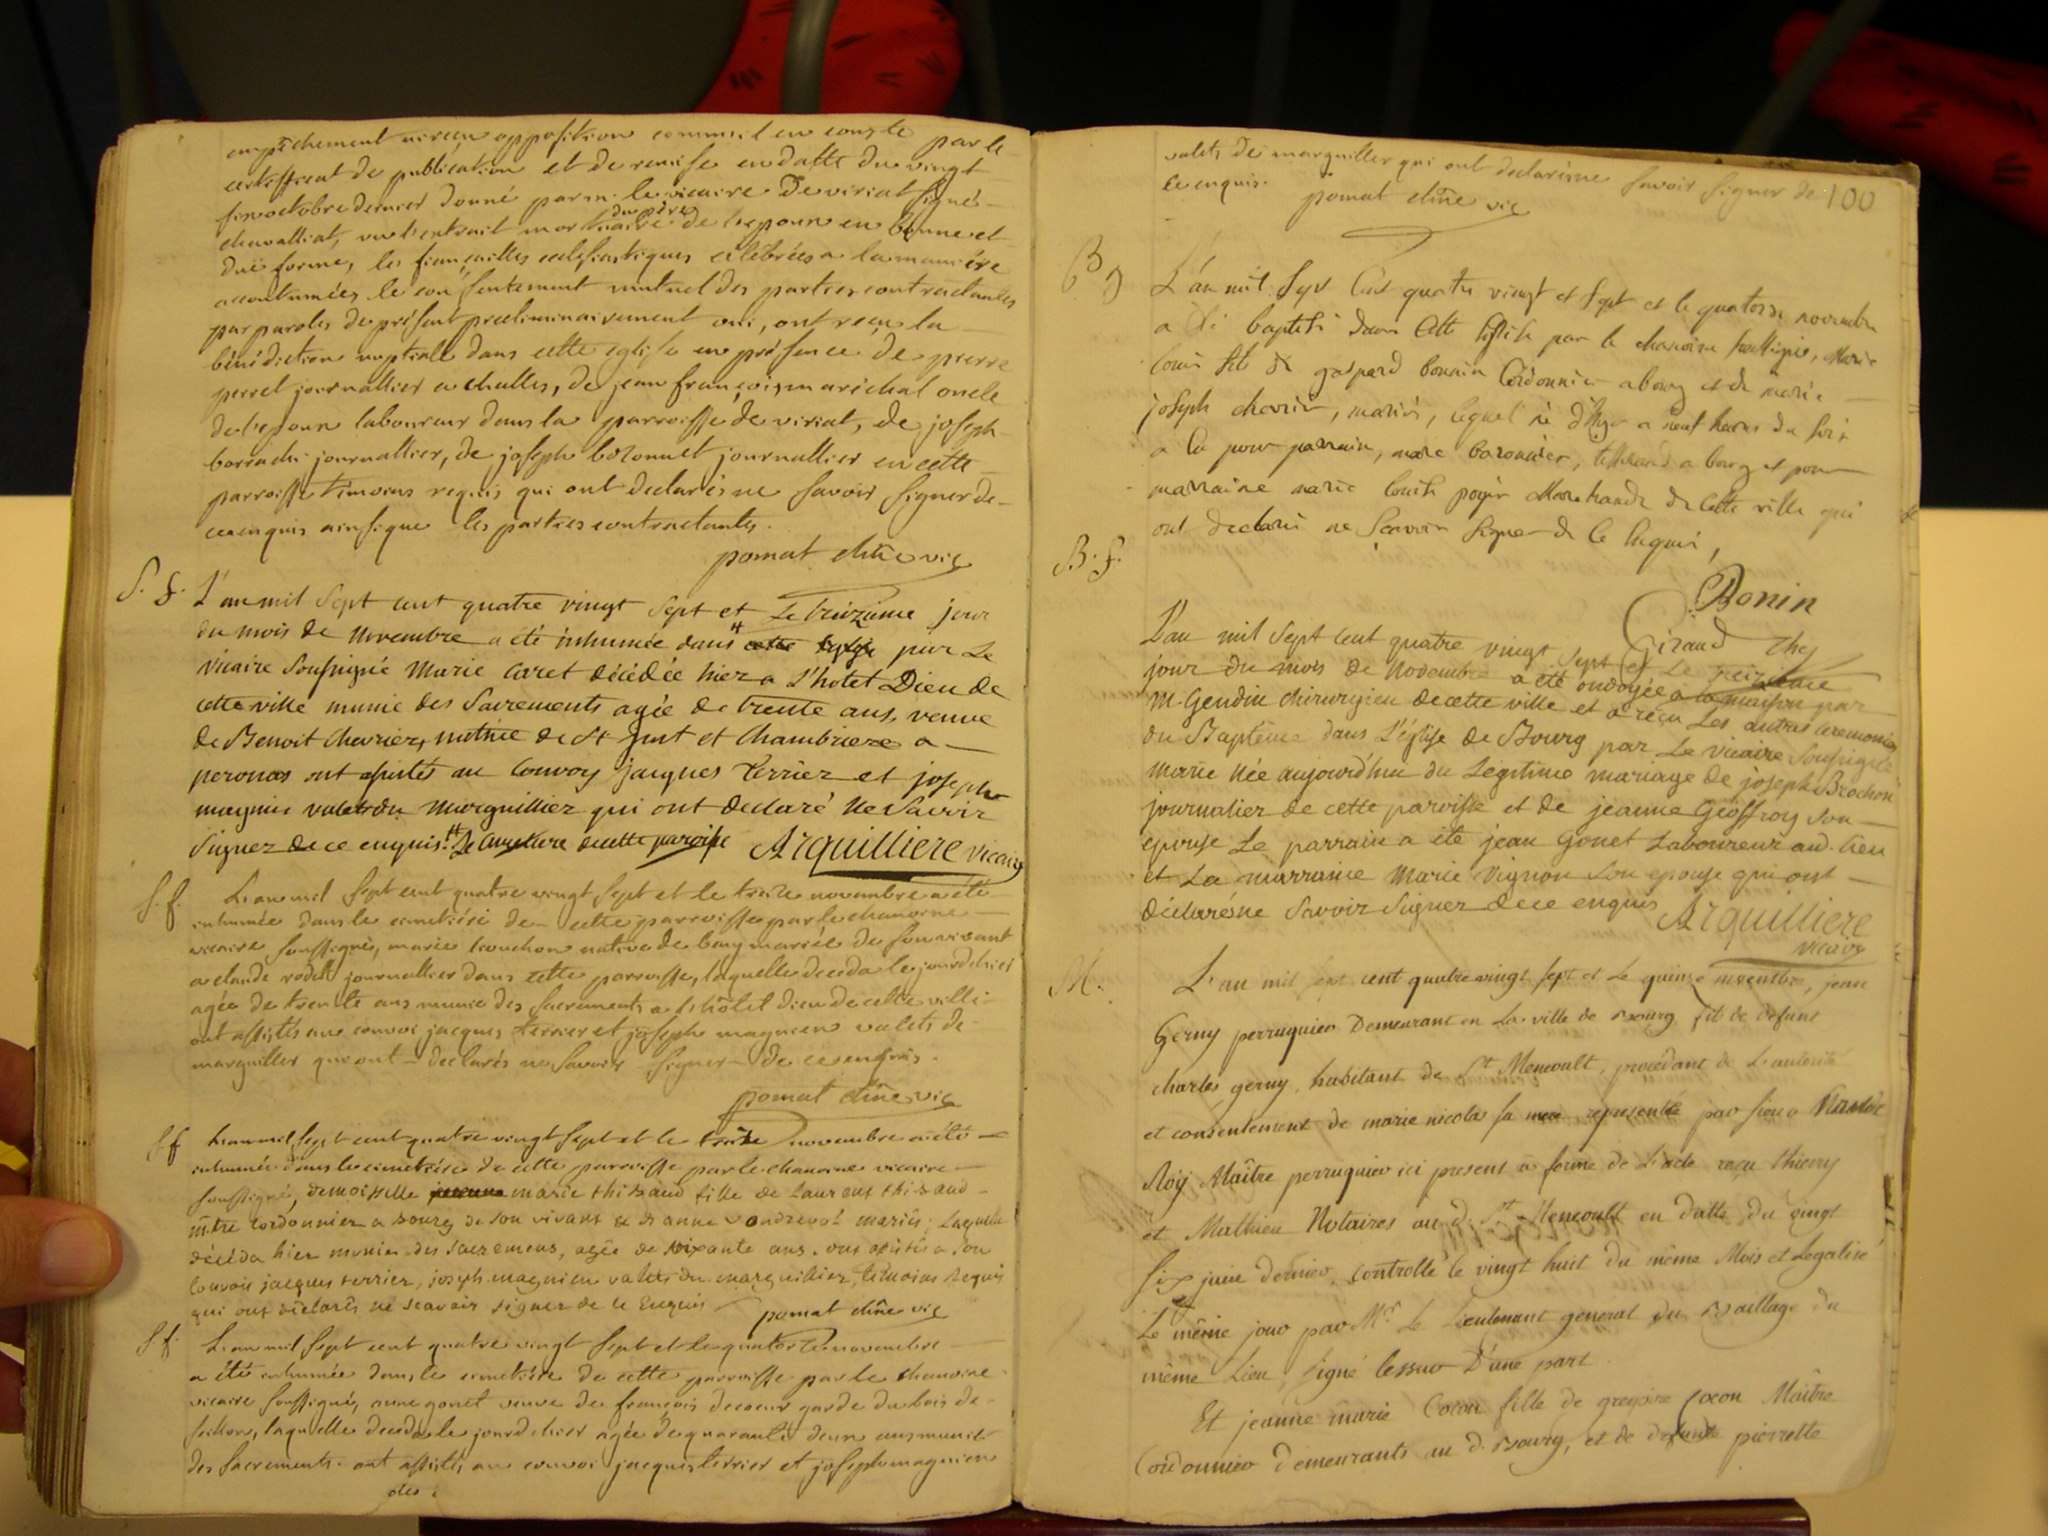 empêchement ni reçu opposition comme il en conste par le
certifficat de publication et de remise en datte du vingt
six octobre dernier donné par m. le vicaire de viriat signé
chavalliat, vu l'extrait mortuaire du père de l'epoux en bonne et
duë forme, les fiançailles ecclesiastiques célébrées a la manière
accoutumées le consentement mutuel des parties contractantes
par paroles de présent préeliminairement oui, ont reçu la
bénédiction nuptiale dans cette eglise en présence de pierre
perret journallier a challes, de jean françois maréchal oncle
de l'epoux laboureur dans la parroisse de viriat, de joseph
journallier, de joseph journallier en cette
parroisse témoins requis qui ont declarés ne savoir signer de
ce enquis ainsi que les parties contractantes.
pomat chne vic
S. f. L'an mil sept cent quatre vingt sept et Le treizième jour
du mois de Novembre a été inhumée dans # cette Eglise par Le
vicaire Soussigné Marie Caret décédée hier a L'hotel Dieu de
cette ville munie des Sacrements agée de trente ans, veuve
de Benoit Chevrier, native de St just et Chambriere a
peronas ont assistés au Convoy jacques Terrier et joseph
magnin valets du Marguillier qui ont declaré Ne Savoir
Signer de ce enquis. # Le Cimetiere de cette paroisse Arquilliere vicaire
S. f. L'an mil sept cent quatre vingt sept et le treize novembre a été
inhumée dans le cimetiére de cette parroisse par le chanoine
vicaire soussigné, marie native de bourg mariée de son vivant
a claude rodet journallier dans cette parroisse, laquelle deceda le jour d'hier
agée de trente ans munie des sacrements a l'hôtel dieu de cette ville
ont assistés au convoi jacques terrier et joseph magnien valets de
marguiller qui ont declarés ne savoir signer de ce enquis.
pomat chne vic
S f L'an mil sept cent quatre vingt sept et le treize novembre a été
inhumée dans le cimetiére de cette parroisse par le chanoine vicaire
soussigné, demoiselle marie thibaud fille de Laurent thibaud
mtre cordonnier a Bourg de son vivant et d'anne vandrevol mariés; laquelle
décéda hier munie des sacremens, agée de soixante ans. ont assistés a son
convois jacques terrier, joseph magnien valets du marguillier, témoins requis
qui ont déclarés ne scavoir signer de ce Enquis pomat chne vic
S f. L'an mil sept cent quatre vingt sept et le quatorze novembre
a été inhumée dans le cimetiére de cette parroisse par le chanoine
vicaire soussigné, anne gonet veuve de françois decoeur garde du bois de
laquelle deceda le jour d'hier agée de quarante deux ans munie
des sacrements. ont assistés au convoi jacques terrier et joseph magnien
des
valets de marguiller qui ont declarés ne savoir signer de 100
ce enquis. pomat chne vic
B g L'an mil sept Cent quatre vingt et sept et le quatorze novembre
a été baptisé dans Cette Eglise par le chanoine soussigné, Marie
louis fils de gaspard bonnin Cordonnier a bourg et de marie
joseph chevrier, mariés, lequel né d'hyer a neuf heures du soir
a Eu pour parrain, marc baronnier, tisserand a bourg et pour
marraine marie louise Marchande de Cette ville qui
ont declaré ne Scavoir signer de Ce Enquis,
Bonin
Giraud
B. f. L'an mil sept cent quatre vingt sept et Le treizième
jour du mois de Novembre a été ondoyée a la maison par
M. Gendin chirurgien de cette ville et a reçu Les autres ceremonies
du Baptême dans L'église de Bourg par Le vicaire Soussigné
marie Née aujourd'hui du Légitime mariage de joseph Brochon
journalier de cette paroisse et de jeanne Géoffroy son
epouse Le parrain a été jean Gonet Laboureur aud. lieu
et La marraine Marie Vignon Son epouse qui ont
déclaré ne Savoir Signer de ce enquis Arquilliere
vicaire
M. L'an mil sept cent quatre vingt sept et Le quinze novembre, jean
Gerny perruquier Demeurant en La ville de Bourg fils de defunt
charles gerny, habitant de St Menoult, procédant de L'autorité
et consentement de marie nicolas sa mere representée par sieur
Roÿ Maître perruquier ici present a forme de L'acte reçu thierry
et Mathieu Notaires au d. St Menoult en datte du vingt
six juin dernier, controllé le vingt huit du même Mois et Legalisé
Le même jour par Mr Le Lieutenant general du Baillage du
même Lieu, signé lessuo D'une part
Et jeanne marie Cocon fille de gregoire Cocon Maître
Cordonnier demeurants au d. Bourg, et de defunte pierrette